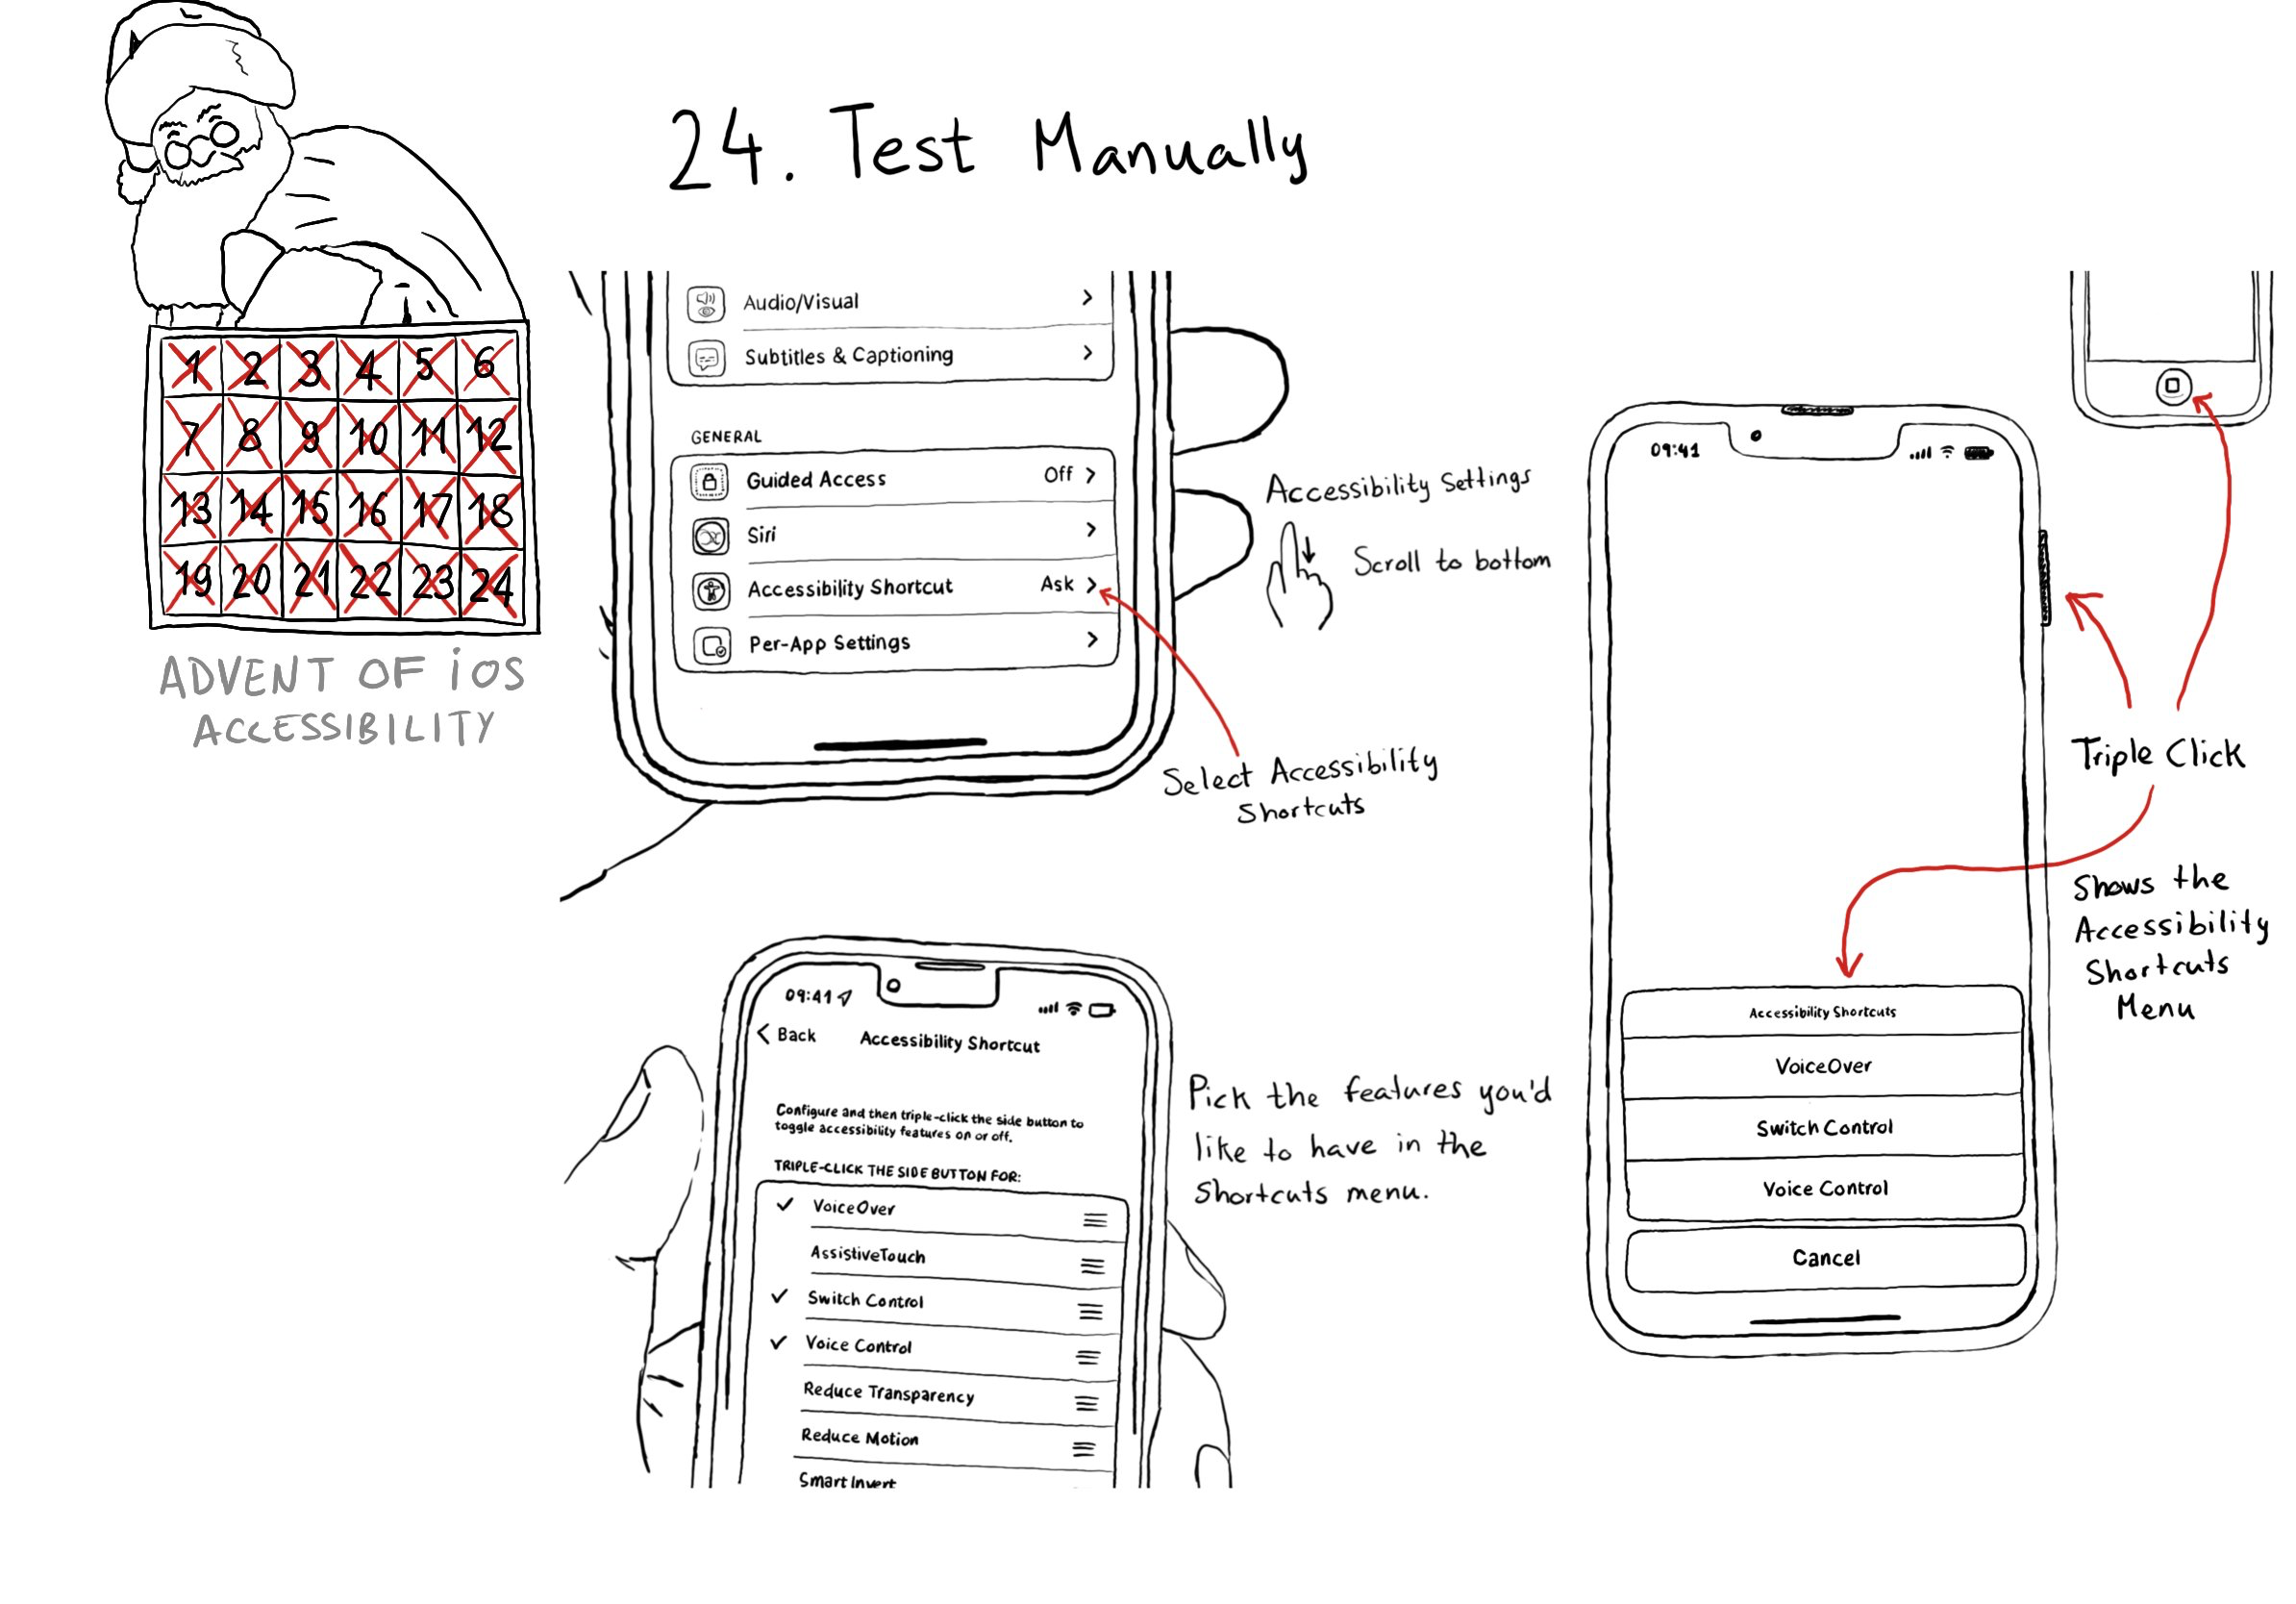 24. Test Manually
1 2 3 4 5 6
7 8 9 10 11 12
13 14 15 16 17 18
19 20 21 22 23 24
ADVENT OF iOS
ACCESSIBILITY
Audio/Visual
Subtitles & Captioning
GENERAL
Guided Access Off
Siri
Accessibility Shortcut Ask
Per-App Settings
Accessibility Settings
Scroll to bottom
Select Accessibility
Shortcuts
09:41
Back Accessibility Shortcut
Configure and then triple-click the side button to
toggle accessibility features on or off.
TRIPLE-CLICK THE SIDE BUTTON FOR:
VoiceOver
AssistiveTouch
Switch Control
Voice Control
Reduce Transparency
Reduce Motion
Smart Invert
Pick the features you'd
like to have in the
Shortcuts menu.
09:41
Triple Click
Shows the
Accessibility
Shortcuts
Menu
Accessibility Shortcuts
VoiceOver
Switch Control
Voice Control
Cancel